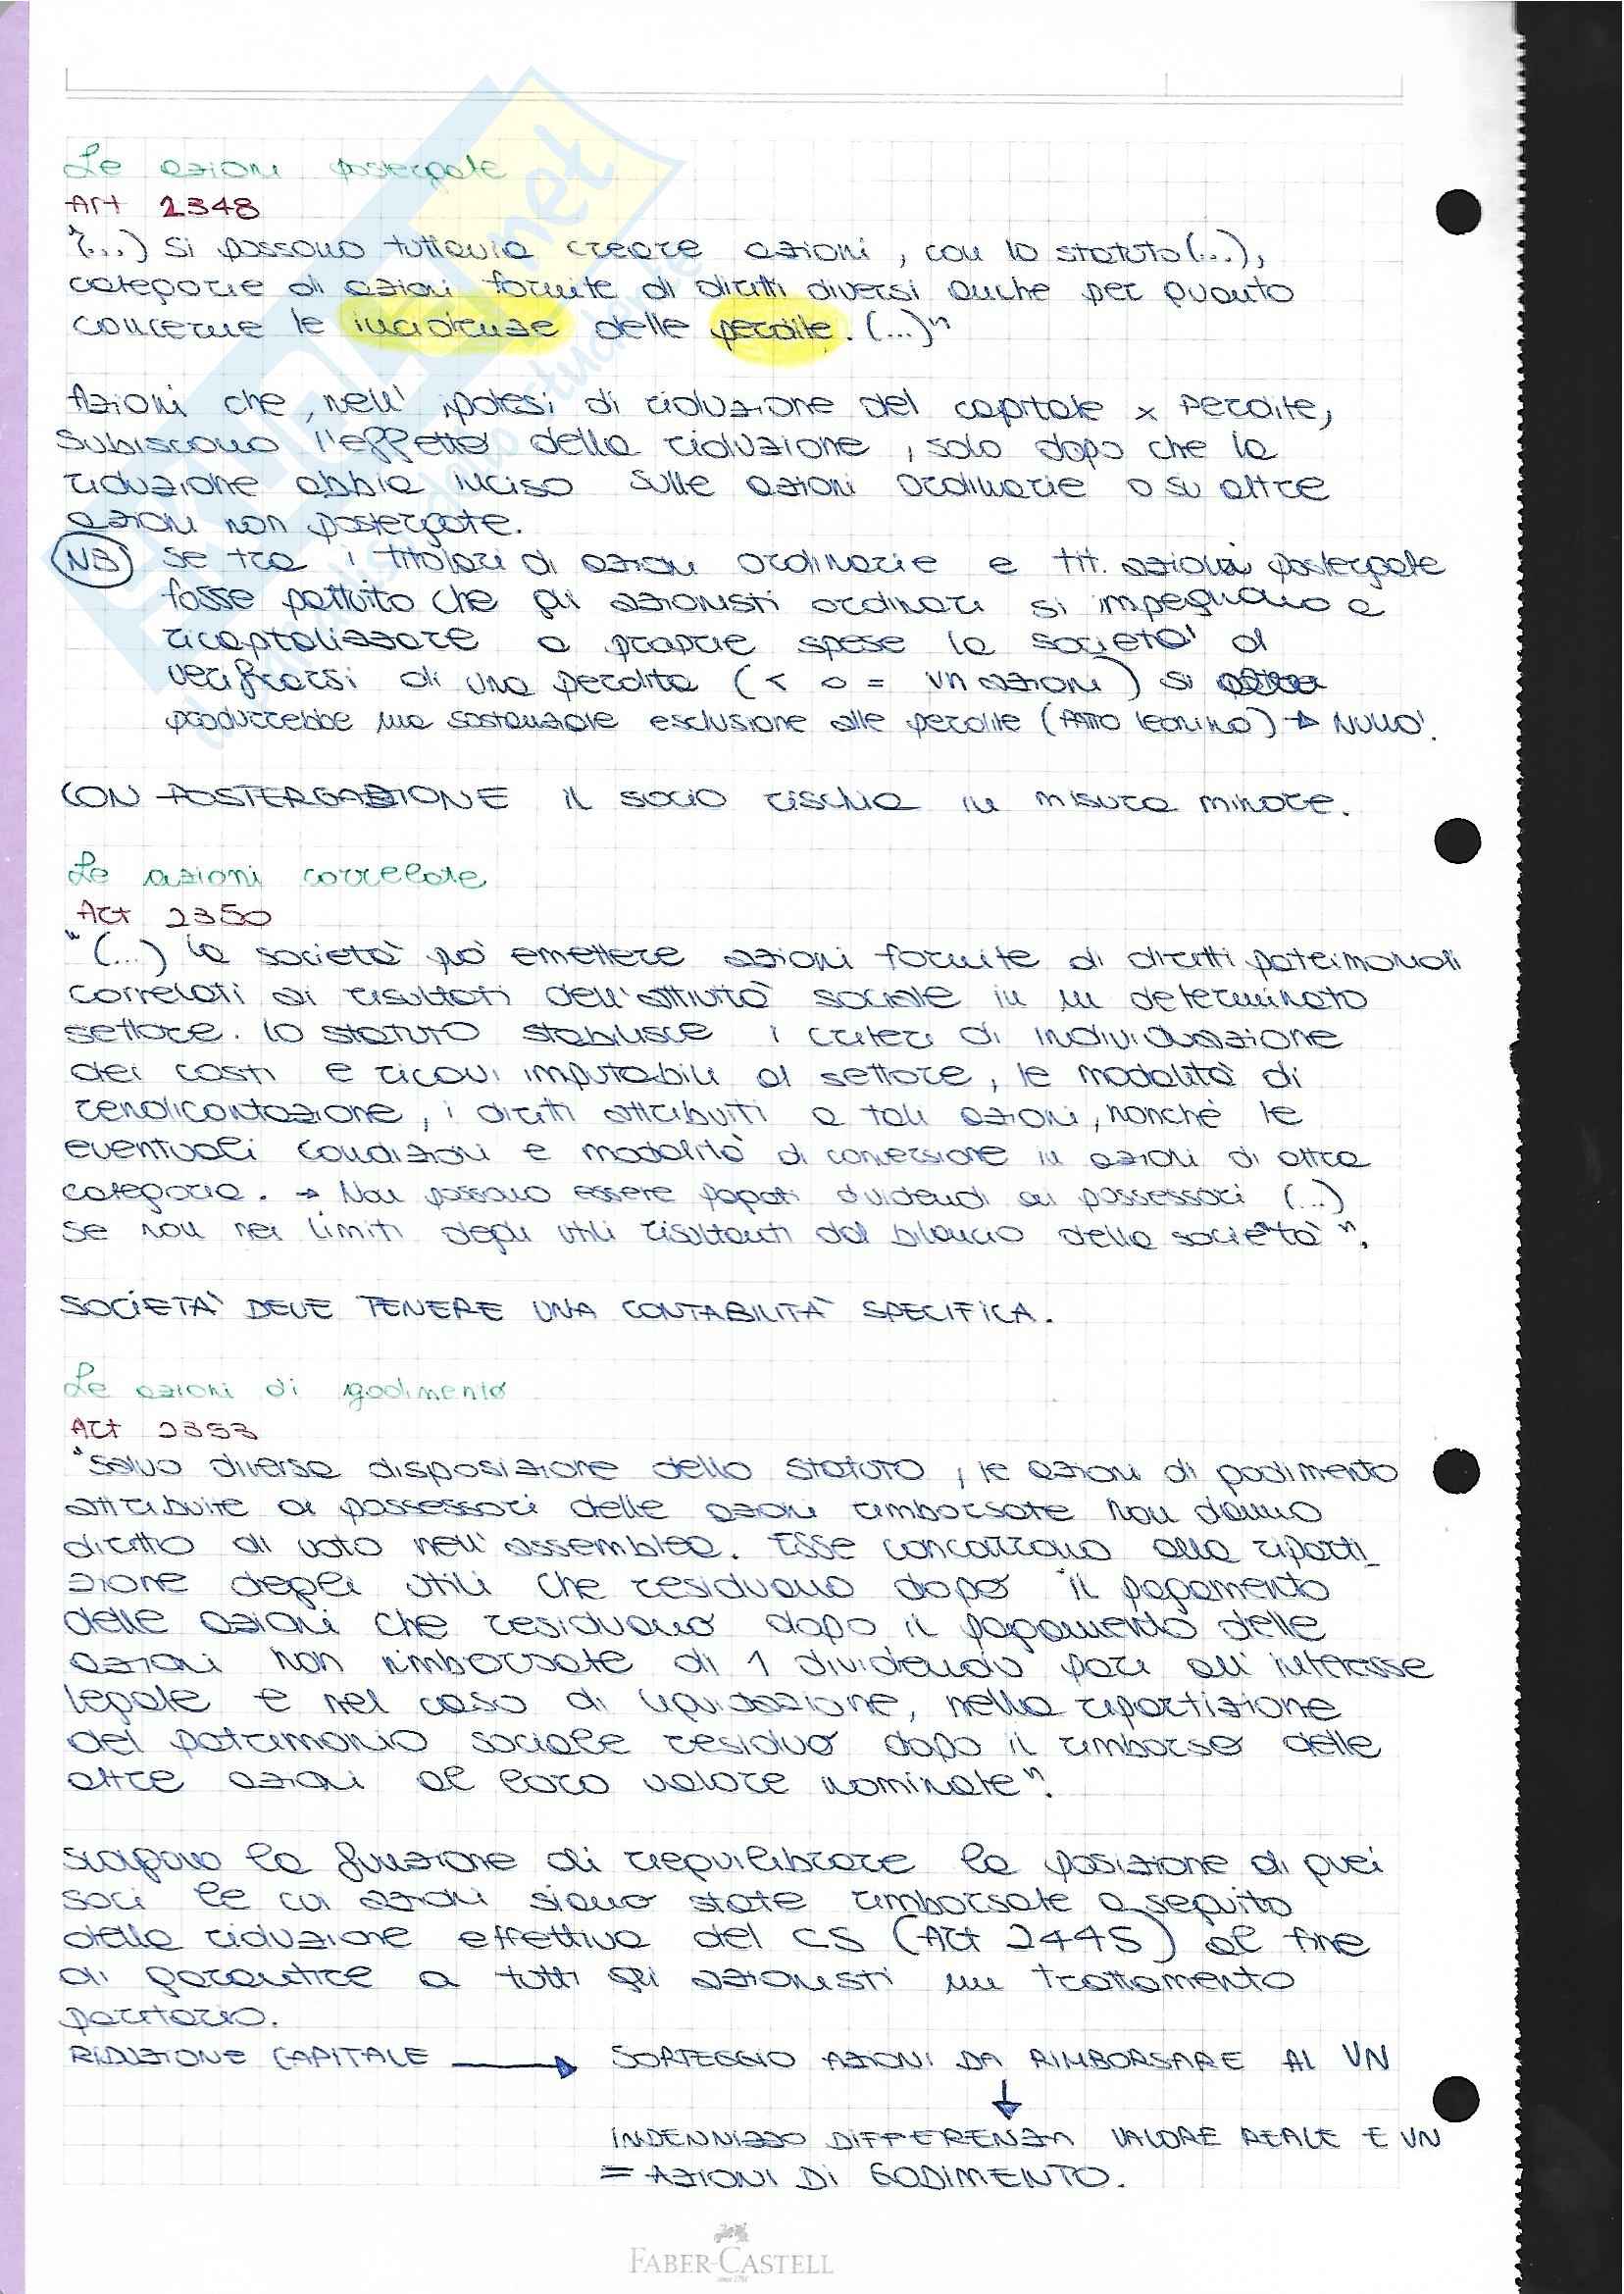 Le azioni postergate
Art 2348
"(...) Si possono tuttavia creare azioni, con lo statuto (...),
categorie di azioni fornite di diritti diversi anche per quanto
concerne le incidenze delle perdite. (...)"
Azioni che, nell' ipotesi di riduzione del capitale x perdite,
subiscono l'effetto della riduzione, solo dopo che la
riduzione abbia inciso sulle azioni ordinarie o su altre
azioni non postergate.
NB Se tra i titolari di azioni ordinarie e tit. azioni postergate
fosse pattuito che gli azionisti ordinari si impegnano a
ricapitalizzare a proprie spese la società al
verificarsi di una perdita (< o = VN azioni) si
produrrebbe una sostanziale esclusione alle perdite (PATTO leonino) → NULLO!
CON POSTERGAZIONE il socio rischia in misura minore.
Le azioni correlate
Art 2350
"(...) la società può emettere azioni fornite di diritti patrimoniali
correlati ai risultati dell'attività sociale in un determinato
settore. lo statuto stabilisce i criteri di individuazione
dei costi e ricavi imputabili al settore, le modalità di
rendicontazione, i diritti attribuiti a tali azioni, nonché le
eventuali condizioni e modalità di conversione in azioni di altra
categoria. → Non possono essere pagati dividendi ai possessori (...)
se non nei limiti degli utili risultanti dal bilancio della società".
SOCIETÀ DEVE TENERE UNA CONTABILITÀ SPECIFICA.
Le azioni di godimento
Art 2353
"Salvo diversa disposizione dello statuto, le azioni di godimento
attribuite ai possessori delle azioni rimborsate non danno
diritto di voto nell'assemblea. Esse concorrono alla riparti_
zione degli utili che residuano dopo il pagamento
delle azioni che residuano dopo il pagamento delle
azioni non rimborsate di 1 dividendo pari all'interesse
legale e nel caso di liquidazione, nella ripartizione
del patrimonio sociale residuo dopo il rimborso delle
altre azioni al loro valore nominale".
Svolgono la funzione di riequilibrare la posizione di quei
soci le cui azioni siano state rimborsate a seguito
della riduzione effettiva del CS (Art 2445) al fine
di garantire a tutti gli azionisti un trattamento
paritario.
RIDUZIONE CAPITALE → SORTEGGIO AZIONI DA RIMBORSARE AL VN
↓
INDENNIZZO DIFFERENZA VALORE REALE E VN
= AZIONI DI GODIMENTO.
FABER-CASTELL
since 1761